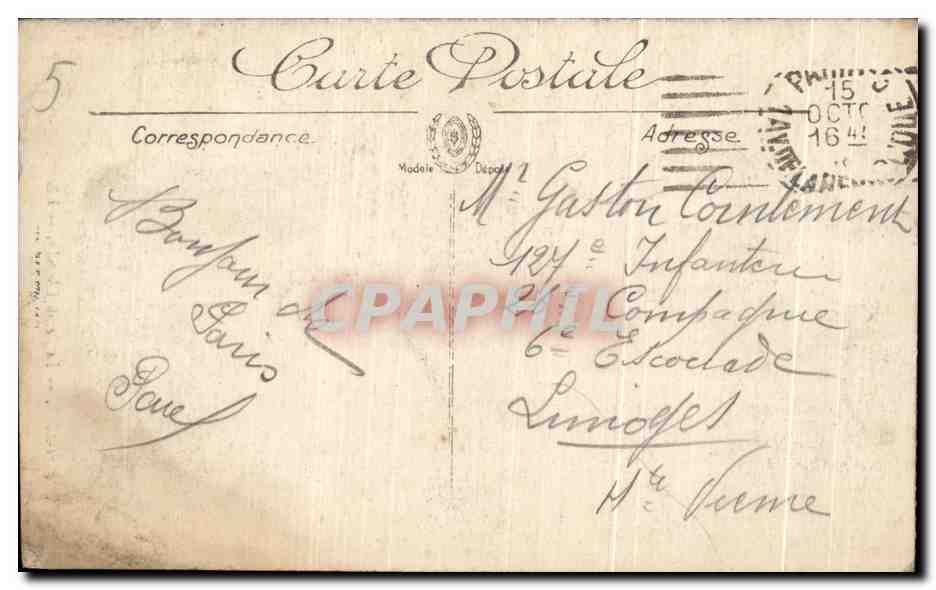 5
Carte Postale
Correspondance
Modèle Déposé
Adresse
15
OCTO
16 4
Bonjour de
Paris
Mr Gaston
127e Infanterie
Compagnie
6e Escouade
Limoges
Hte Vienne
CPAPHIL